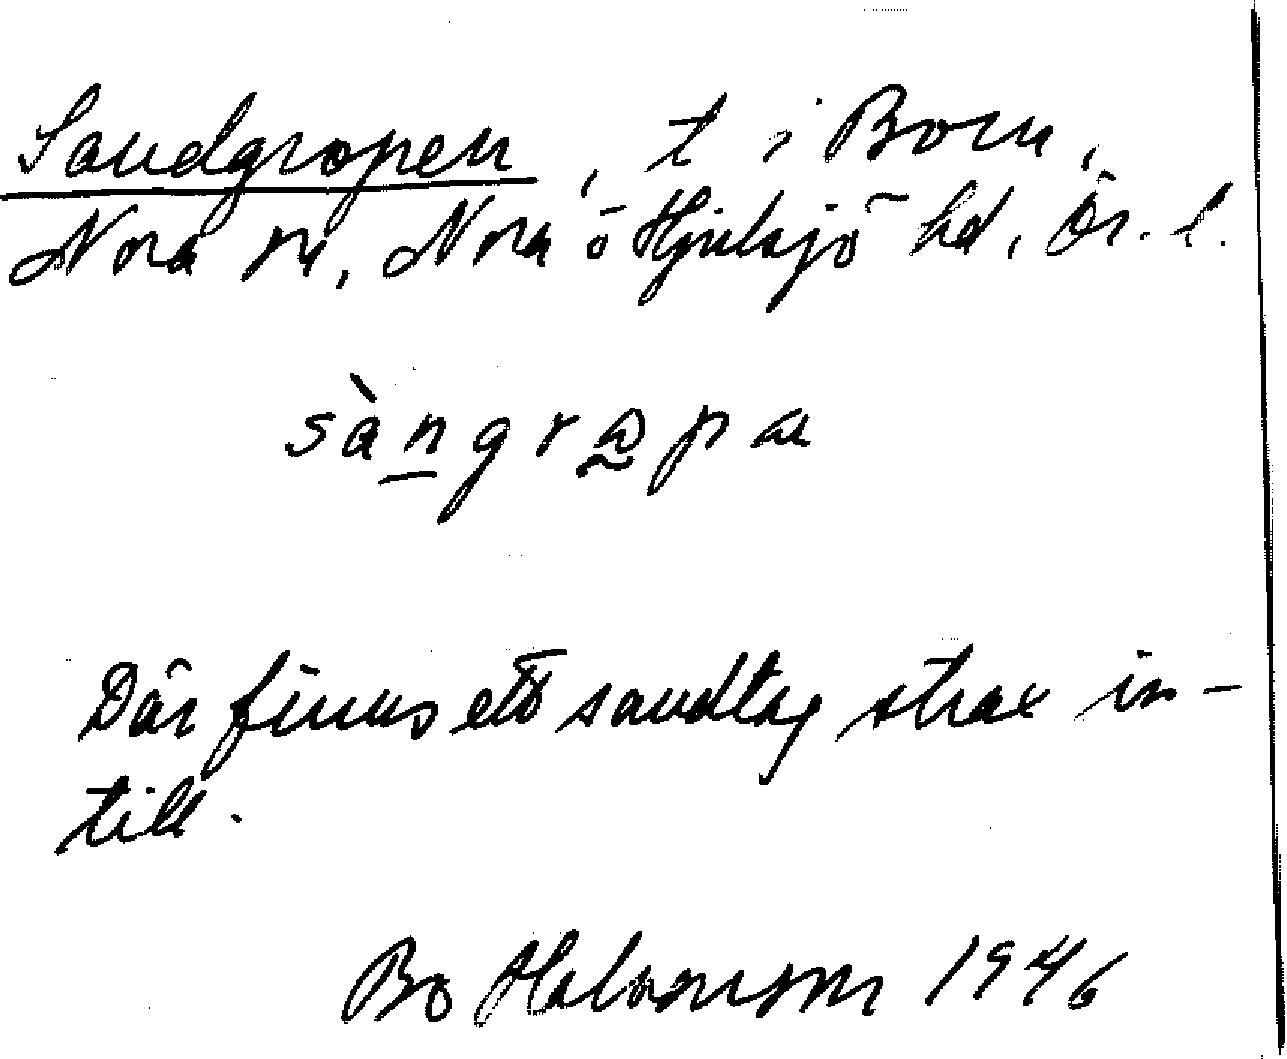 Sandgropen, t i Born,
Nora sn, Nora o Hjulsjö hd, Ör. l.
sàngrape
Där finns ett sandtag strax in-
till.
Bo 1946